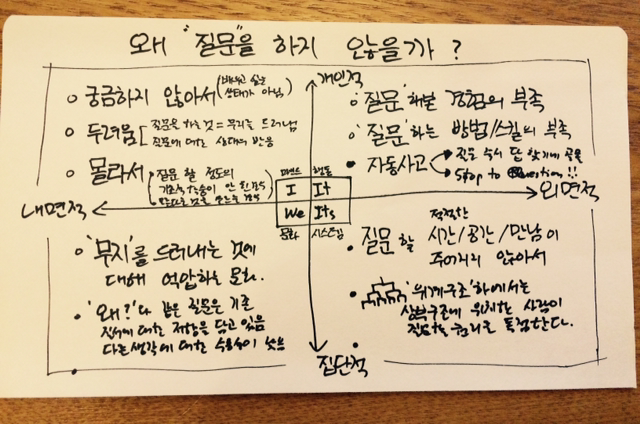 왜 "질문"을 하지 않을까?
개인적
궁금하지 않아서 (배우고 싶은 상태가 아님)
두려움 [질문을 하는 것 = 무지를 드러냄
질문에 대한 상대의 반응
몰라서 질문 할 정도의
"질문" 해본 경험의 부족
"질문" 하는 방법/스킬의 부족
자동사고 질문 즉시 답 찾기에 골몰
Stop to Question!!
마인드 행동
I It
We Its
문화 시스템
내면적
외면적
'무지'를 드러내는 것에
대해 억압하는 문화.
'왜?'와 같은 질문은 기존
질서에 대한 저항을 담고 있음
다른 생각에 대한 수용성이 낮음
질문 할 적절한
시간/공간/만남이
주어지지 않아서
'위계구조'하에서는
상부구조에 위치한 사람이
질문할 권리를 독점한다.
집단적